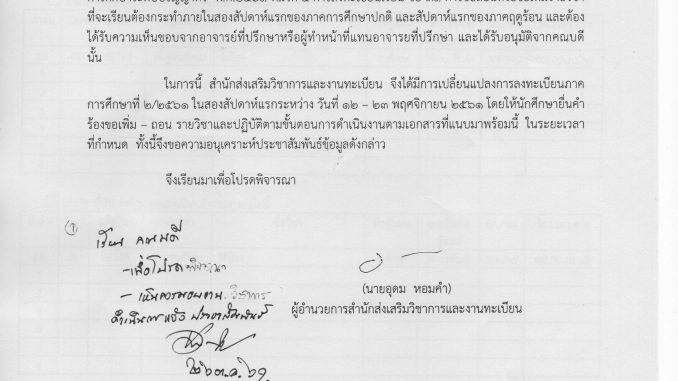 ที่จะเรียนต้องกระทำภายในสองสัปดาห์แรกของภาคการศึกษาปกติ และสัปดาห์แรกของภาคฤดูร้อน และต้อง
ได้รับความเห็นชอบจากอาจารย์ที่ปรึกษาหรือผู้ทำหน้าที่แทนอาจารย์ที่ปรึกษา และได้รับอนุมัติจากคณบดี
นั้น
ในการนี้ สำนักส่งเสริมวิชาการและงานทะเบียน จึงได้มีการเปลี่ยนแปลงการลงทะเบียนภาค
การศึกษาที่ ๒/๒๕๖๑ ในสองสัปดาห์แรกระหว่าง วันที่ ๑๒ – ๒๓ พฤศจิกายน ๒๕๖๑ โดยให้นักศึกษายื่นคำ
ร้องขอเพิ่ม – ถอน รายวิชาและปฏิบัติตามขั้นตอนการดำเนินงานตามเอกสารที่แนบมาพร้อมนี้ ในระยะเวลา
ที่กำหนด ทั้งนี้จึงขอความอนุเคราะห์ประชาสัมพันธ์ข้อมูลดังกล่าว
จึงเรียนมาเพื่อโปรดพิจารณา
(1)
เรียน คณบดี
- เพื่อโปรดพิจารณา
- เห็นควรมอบงานวิชาการ
ดำเนินการแจ้ง ประชาสัมพันธ์
๒๖ ต.ค. ๖๑
(นายอุดม หอมคำ)
ผู้อำนวยการสำนักส่งเสริมวิชาการและงานทะเบียน